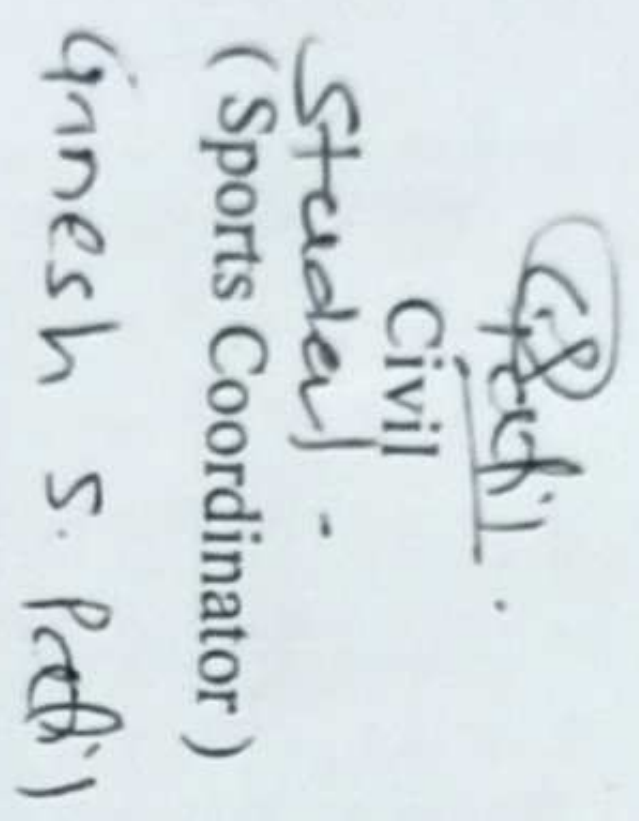 GPatil.
Civil
Student -
( Sports Coordinator )
Ganesh S. Patil